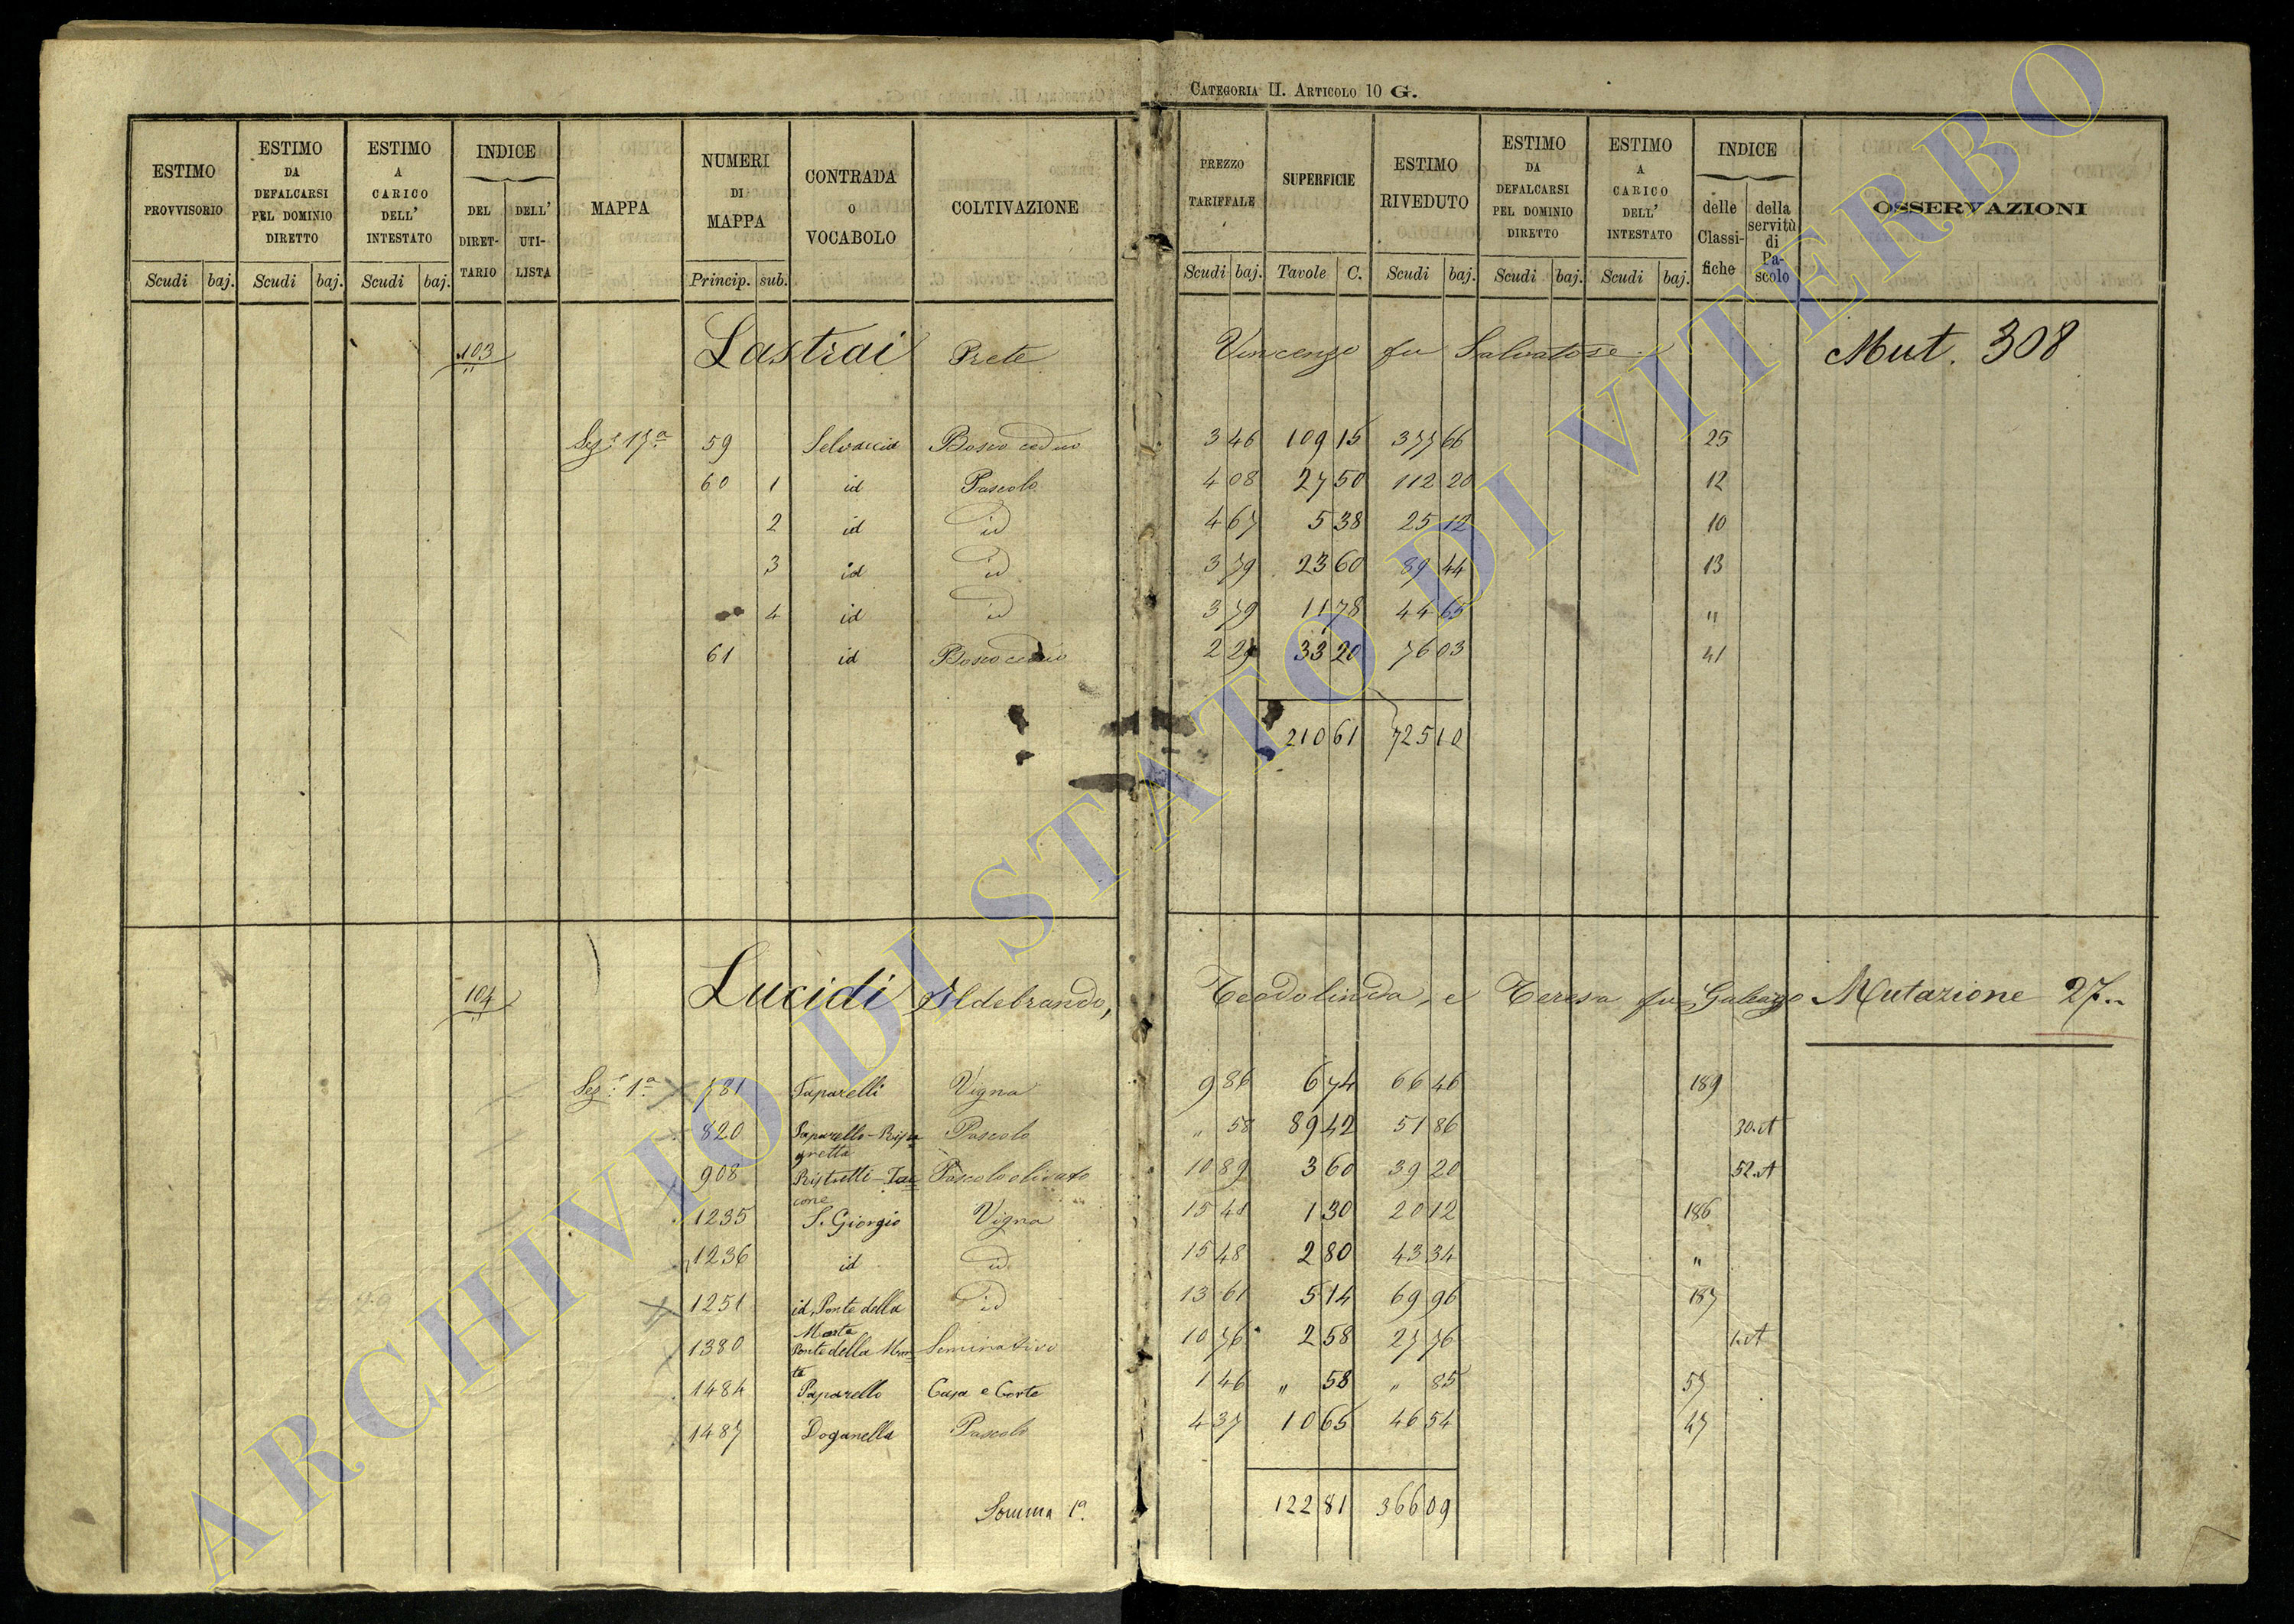 CATEGORIA II. ARTICOLO 10 G.
ESTIMO PROVVISORIO Scudi baj.
ESTIMO DA DEFALCARSI PEL DOMINIO DIRETTO Scudi baj.
ESTIMO A CARICO DELL' INTESTATO Scudi baj.
INDICE DEL DIRET-TARIO DELL' UTI-LISTA
MAPPA
NUMERI DI MAPPA Princip. sub.
CONTRADA O VOCABOLO
COLTIVAZIONE
PREZZO TARIFFALE Scudi baj.
SUPERFICIE Tavole C.
ESTIMO RIVEDUTO Scudi baj.
ESTIMO DA DEFALCARSI PEL DOMINIO DIRETTO Scudi baj.
ESTIMO A CARICO DELL' INTESTATO Scudi baj.
INDICE delle Classi-fiche della servitù di Pa-scolo
OSSERVAZIONI
103 Lastrai Prete Vincenzo fu Salvatore Mut. 308
Sez.e 17a 59 Selvaccia Bosco ceduo 3 46 109 15 377 66 25
60 1 id Pascolo 4 08 27 50 112 20 12
2 id id 4 67 5 38 25 12 10
3 id id 3 79 23 60 89 44 13
4 id id 3 79 11 78 44 65 "
61 id Bosco ceduo 2 29 33 20 76 03 41
210 61 725 10
104 Lucidi Aldebrando, Teodolinda, e Teresa fu Galeazzo Mutazione 27
Sez.e 1a 781 Paparelli Vigna 9 86 6 74 66 46 189
820 Paparello - Ripa Pascolo " 58 89 42 51 86 30.A
gretta
908 Ristretti - Pascolo olivato 10 89 3 60 39 20 52.A
cone
1235 S. Giorgio Vigna 15 48 1 30 20 12 186
1236 id id 15 48 2 80 43 34 "
1251 id, Ponte della id 13 61 5 14 69 96 187
Marta
1380 Ponte della Mar= Seminativo 10 76 2 58 27 76 1.A
ta
1484 Paparello Casa e Corte 1 46 " 58 " 85 57
1487 Doganella Pascolo 4 37 10 65 46 54 47
Somma 1a. 122 81 366 09
ARCHIVIO DI STATO DI VITERBO